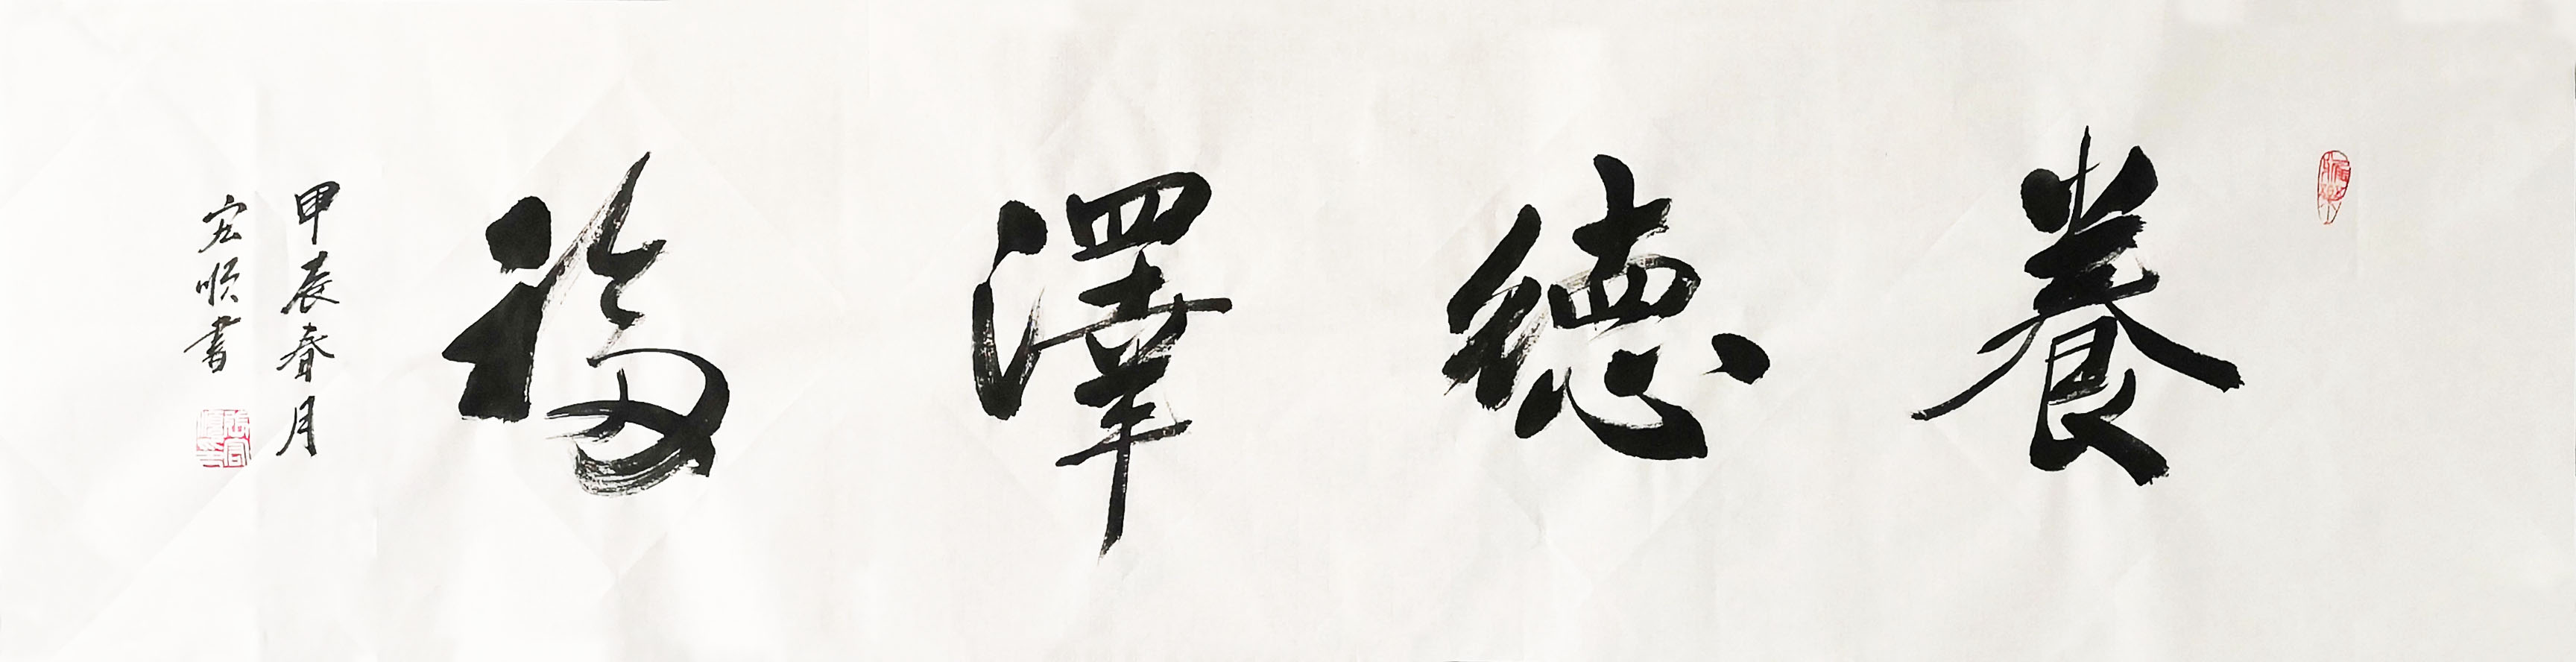 養德澤福
甲辰春月
宏順書